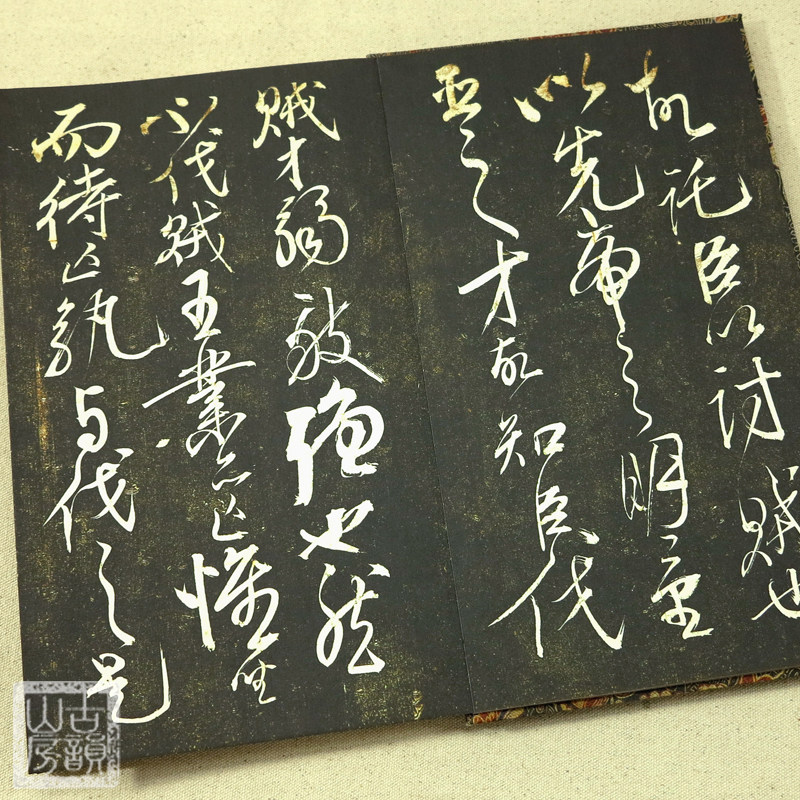 故託臣以討賊也
以先帝之明量
臣之才故知臣伐
賊才弱敵強也然
不伐賊王業亦亡惟坐
而待亡孰与伐之是
古韻山房